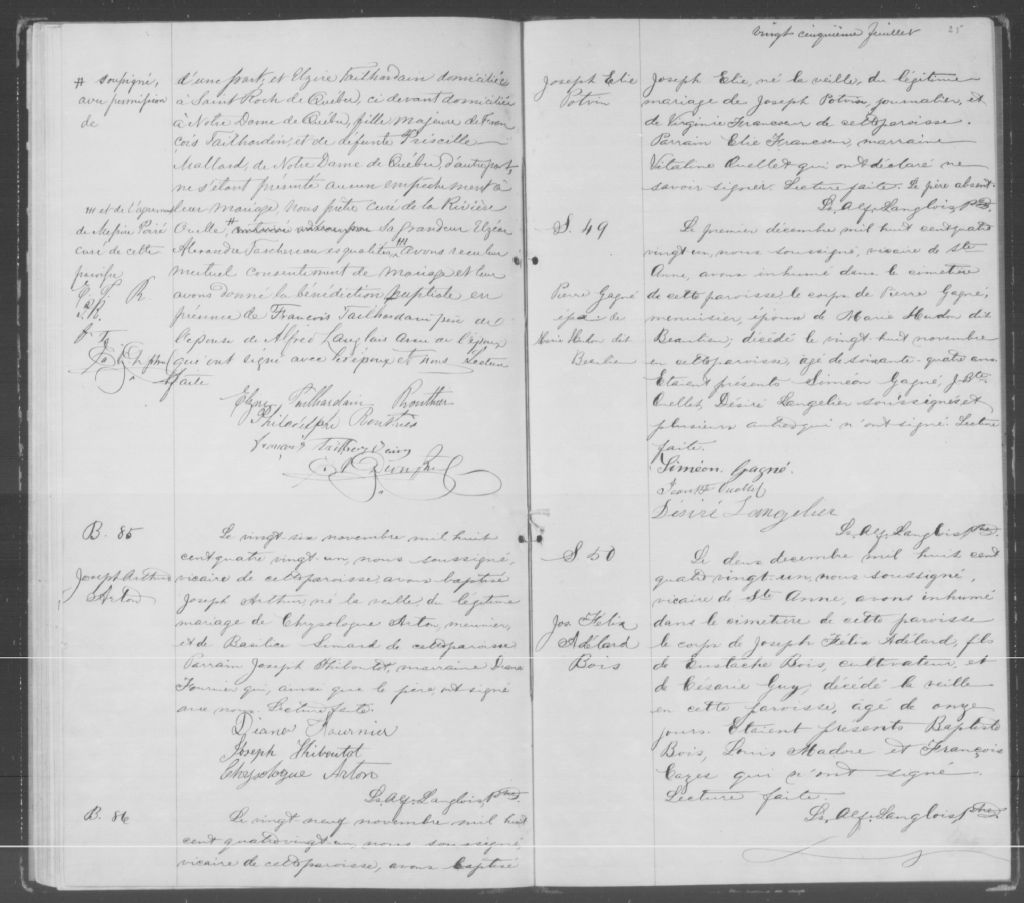 # soussigné,
avec permission
de
d'une part, et Elzire Tailhardain domiciliée
à Saint Roch de Québec, ci devant domiciliée
à Notre Dame de Québec, fille majeure de Fran
çois Tailhardin, et de défunte Priscille
Mallard, de Notre Dame de Québec, d'autre part,
ne s'étant présenté aucun empêchement à
leur mariage, nous prêtre curé de la Rivière
Ouelle, # Sa Grandeur Elzéar
Alexandre Taschereau es qualités, avons reçu leur
mutuel consentement de mariage et leur
avons donné la bénédiction en
présence de François Tailhardain père de
l'épouse de Alfred Langlais de l'époux
qui ont signé avec les époux et nous Lecture
faite
et de l'agrément
de Messire Poiré
curé de cette
paroisse
Elzire Tailhardain Routhier
B. 85
Joseph Arthur
Arton
Le vingt six novembre mil huit
cent quatre vingt un, nous soussigné,
vicaire de cette paroisse avons baptisé
Joseph Arthur, né la veille, du légitime
mariage de Chrysologue Arton, meunier,
et de Basilice Simard de cette paroisse
Parrain Joseph Thiboutot, marraine Diana
Fournier qui, ainsi que le père, ont signé
avec nous. Lecture faite.
Diana Fournier
Joseph Thiboutot
Chrysologue Arton
Ls. Alf. Langlois Ptre.
B. 86
Le vingt neuf novembre mil huit
cent quatre vingt un, nous soussigné,
vicaire de cette paroisse, avons baptisé
vingt cinquième feuillet 25
Joseph Elie
Potvin
Joseph Elie, né la veille, du légitime
mariage de Joseph Potvin, journalier, et
de Virginie Francoeur de cette paroisse.
Parrain Elie Francoeur, marraine
Vitaline Ouellet qui ont déclaré ne
savoir signer. Lecture faite. Le père absent.
Ls. Alf. Langlois Ptre.
S. 49
Pierre Gagné
époux de
Marie Hudon dit
Beaulieu
Le premier décembre mil huit cent quatre
vingt un, nous soussigné, vicaire de Ste
Anne, avons inhumé dans le cimetière
de cette paroisse le corps de Pierre Gagné,
menuisier, époux de Marie Hudon dit
Beaulieu; décédé le vingt huit novembre
en cette paroisse, agé de soixante-quatre ans.
Etaient présents Siméon Gagné, J. Bte.
Ouellet, Désiré Langelier soussignés et
plusieurs autres qui n'ont signé. Lecture
faite.
Siméon Gagné.
Jean Bte Ouellet
Désiré Langelier
Ls. Alf. Langlois Ptre.
S 50
Jos. Felix
Adélard
Bois
Le deux decembre mil huit cent
quatre vingt-un, nous soussigné,
vicaire de Ste Anne, avons inhumé
dans le cimetiere de cette paroisse
le corps de Joseph Félix Adélard, fils
de Eustache Bois, cultivateur, et
de Césarie Guy, décédé la veille
en cette paroisse, agé de onze
jours. Etaient présents Baptiste
Bois, Louis Madore et François
Cazes qui n'ont signé.
Lecture faite.
Ls. Alf. Langlois Ptre.